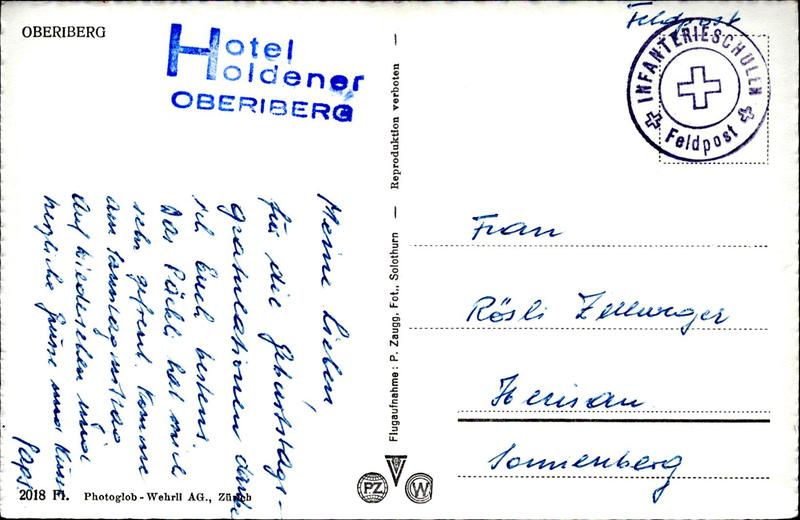 OBERIBERG
Hotel
Holdener
OBERIBERG
Feldpost
INFANTERIESCHULEN
Feldpost
Meine Lieben,
für die Geburtstags-
gratulationen danke
ich Euch bestens.
Das Päckli hat mich
sehr gefreut. Komme
am Sonntagmittag
Auf Wiedersehen und
herzliche Grüsse und Küsse
Paps
Reproduktion verboten
Flugaufnahme: P. Zaugg, Fot., Solothurn
Frau
Rösli Zellweger
Herisau
Sonnenberg
2018 Fl. Photoglob-Wehrli AG., Zürich
PZ
W